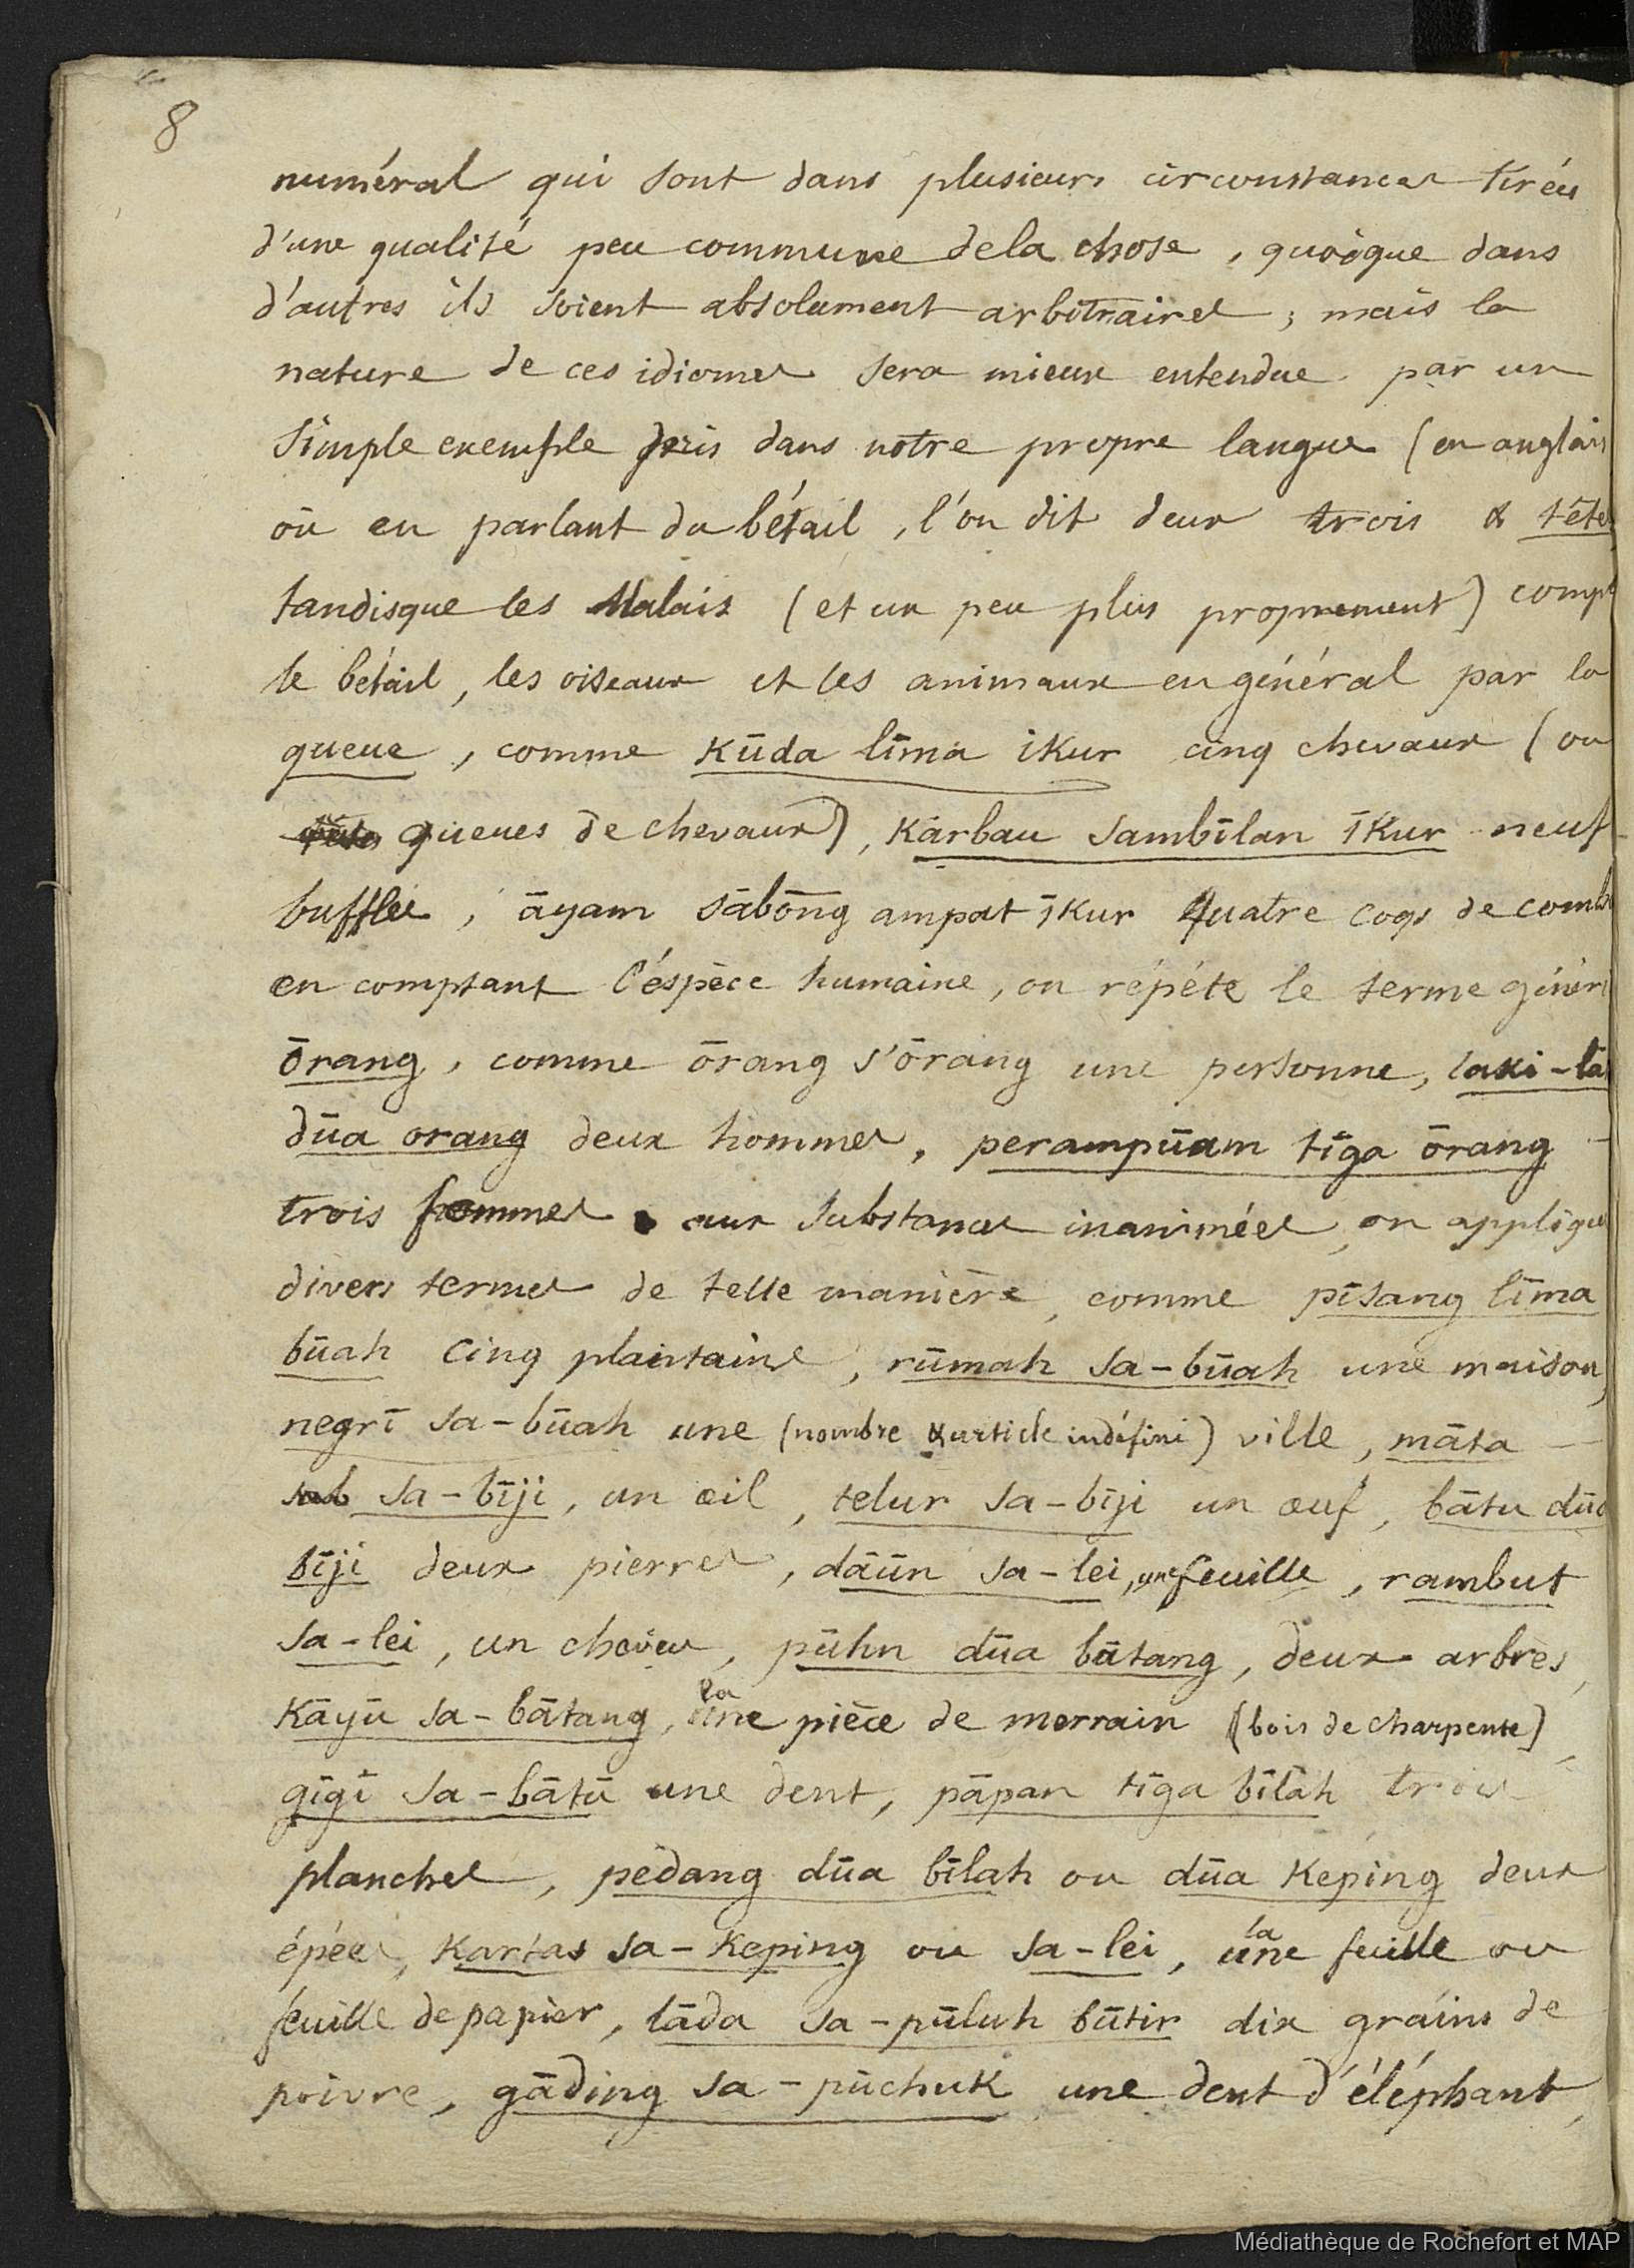 8
numéral qui sont dans plusieurs circonstances tirées
d'une qualité peu commune dela chose, quoique dans
d'autres ils soient absolument arbitraires; mais la
nature de ces idiomes sera mieux entendue par un
simple exemple pris dans notre propre langue (en anglais
où en parlant du bétail, l'on dit deux trois & têtes
tandisque les Malais (et un peu plus proprement) compt
le bétail, les oiseaux et les animaux en général par la
queue, comme kūda līma ikur cinq chevaux (ou
queues de chevaux), kārbau sambīlan īkur neuf
buffles, āyam sābōng ampat īkur quatre coqs de comb
en comptant l'éspèce humaine, on répéte le terme généri
ōrang, comme ōrang s'ōrang une personne, laki-lā
dūa orang deux hommes, perampūam tīga ōrang
trois femmes aux substances inanimées, on applique
divers termes de telle manière, comme pīsang līma
būah cinq plaintains, rūmah sa-būah une maison,
negrī sa-būah une (nombre & article indéfini) ville, māta
sab sa-bīji, un œil, telur sa-bīji un œuf, bātu dūa
bīji deux pierres, dāūn sa-lei, une feuille, rambut
sa-lei, un cheveu, pūhn dūa bātang, deux arbres,
kāyū sa-bātang, la une pièce de merrain (bois de charpente)
gīgī sa-bātū une dent, pāpan tīga bīlah trois
planches, pedang dūa bīlah ou dūa keping deux
épées, kartas sa-keping ou sa-lei, la une feuille ou
feuille de papier, lāda sa-pūluh būtir dix grains de
poivre, gāding sa-pūchuk une dent d'éléphant,
Médiathèque de Rochefort et MAP